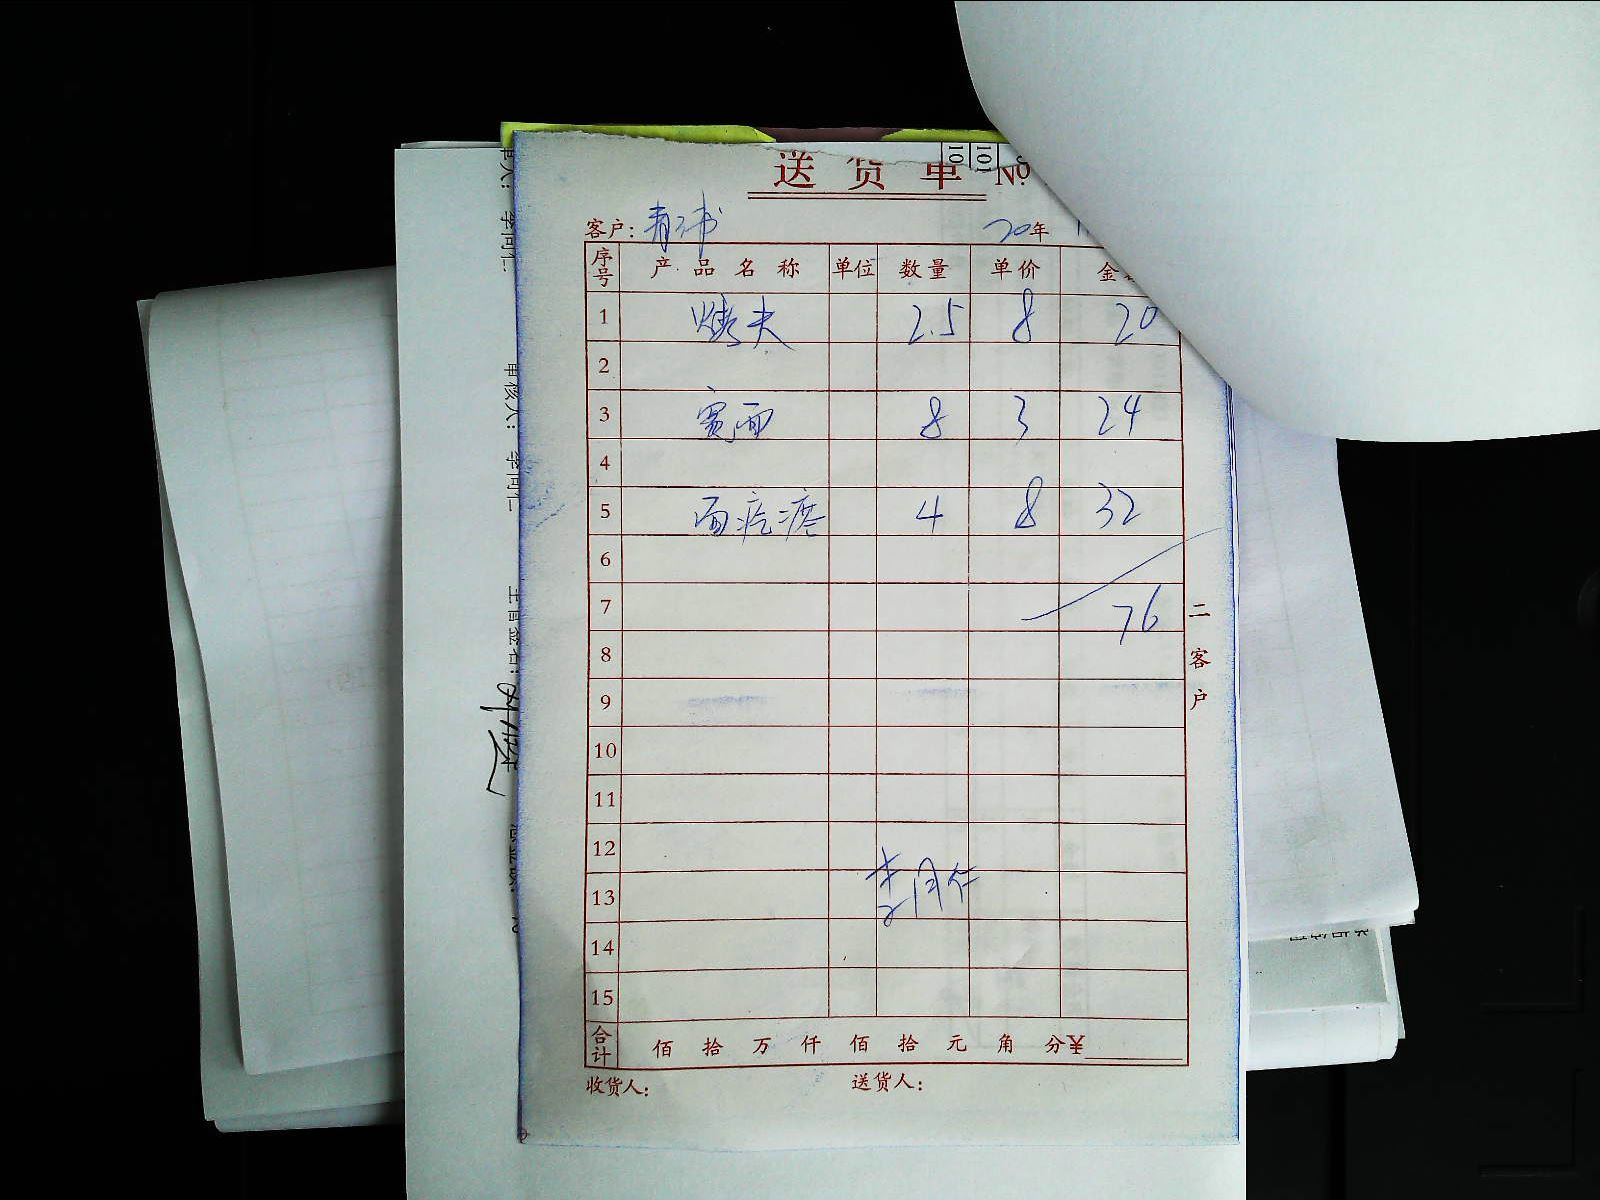 送货单 №
客户: 青沛 20年
序号 产品名称 单位 数量 单价 金
1 烤夫 2.5 8 20
2
3 宽面 8 3 24
4
5 面疙瘩 4 8 32
6
7 76
8
9
10
11
12
13 李同仁
14
15
合计 佰 拾 万 仟 佰 拾 元 角 分¥
收货人: 送货人:
二客户
审核人: 李同仁
主管签名: